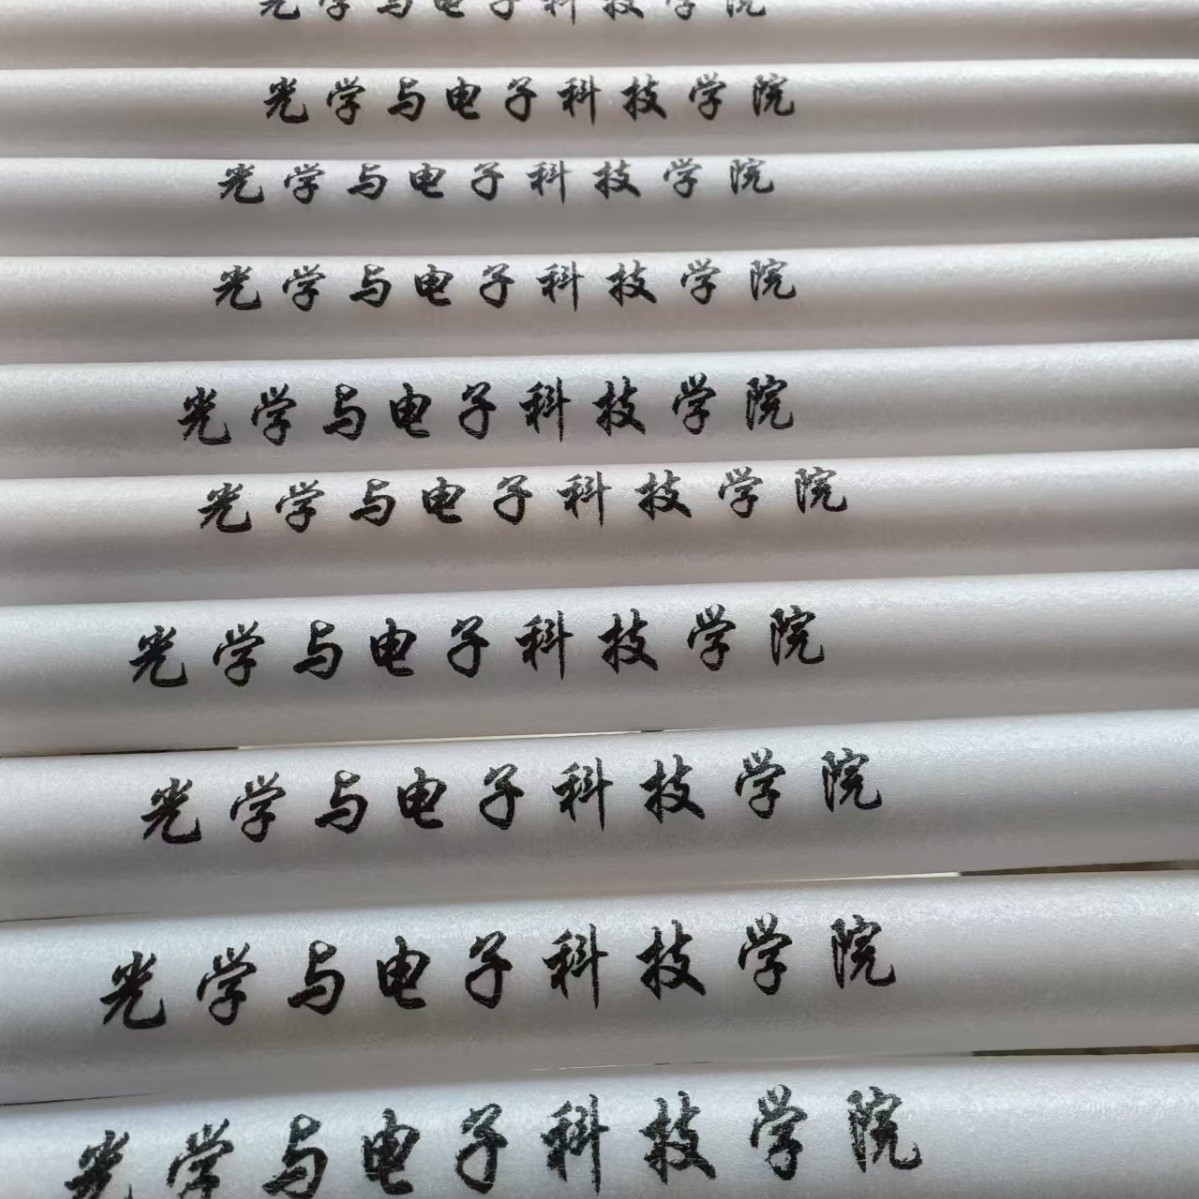 光学与电子科技学院
光学与电子科技学院
光学与电子科技学院
光学与电子科技学院
光学与电子科技学院
光学与电子科技学院
光学与电子科技学院
光学与电子科技学院
光学与电子科技学院
光学与电子科技学院